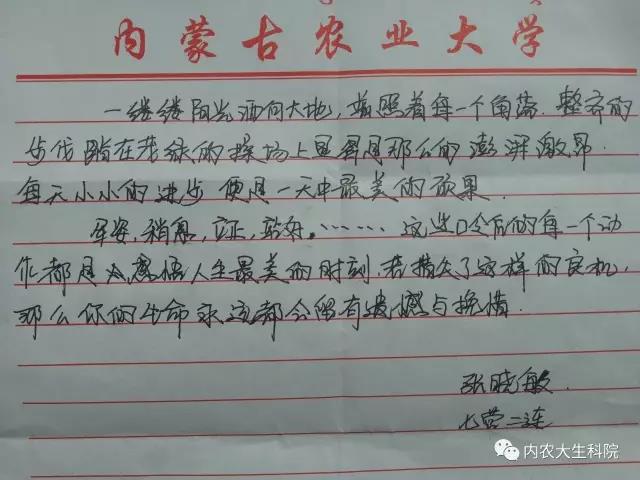 内蒙古农业大学
一缕缕阳光洒向大地，普照着每一个角落．整齐的
步伐踏在茂绿的操场上显得是那么的澎湃激昂．
每天小小的进步 便是一天中最美的硕果．
军姿，稍息，立正，站好．……这些口令后的每一个动
作都是感悟人生最美的时刻．若错失了这样的良机，
那么你的生命永远都会留有遗憾与挽惜．
张晓敏．
七营二连
内农大生科院